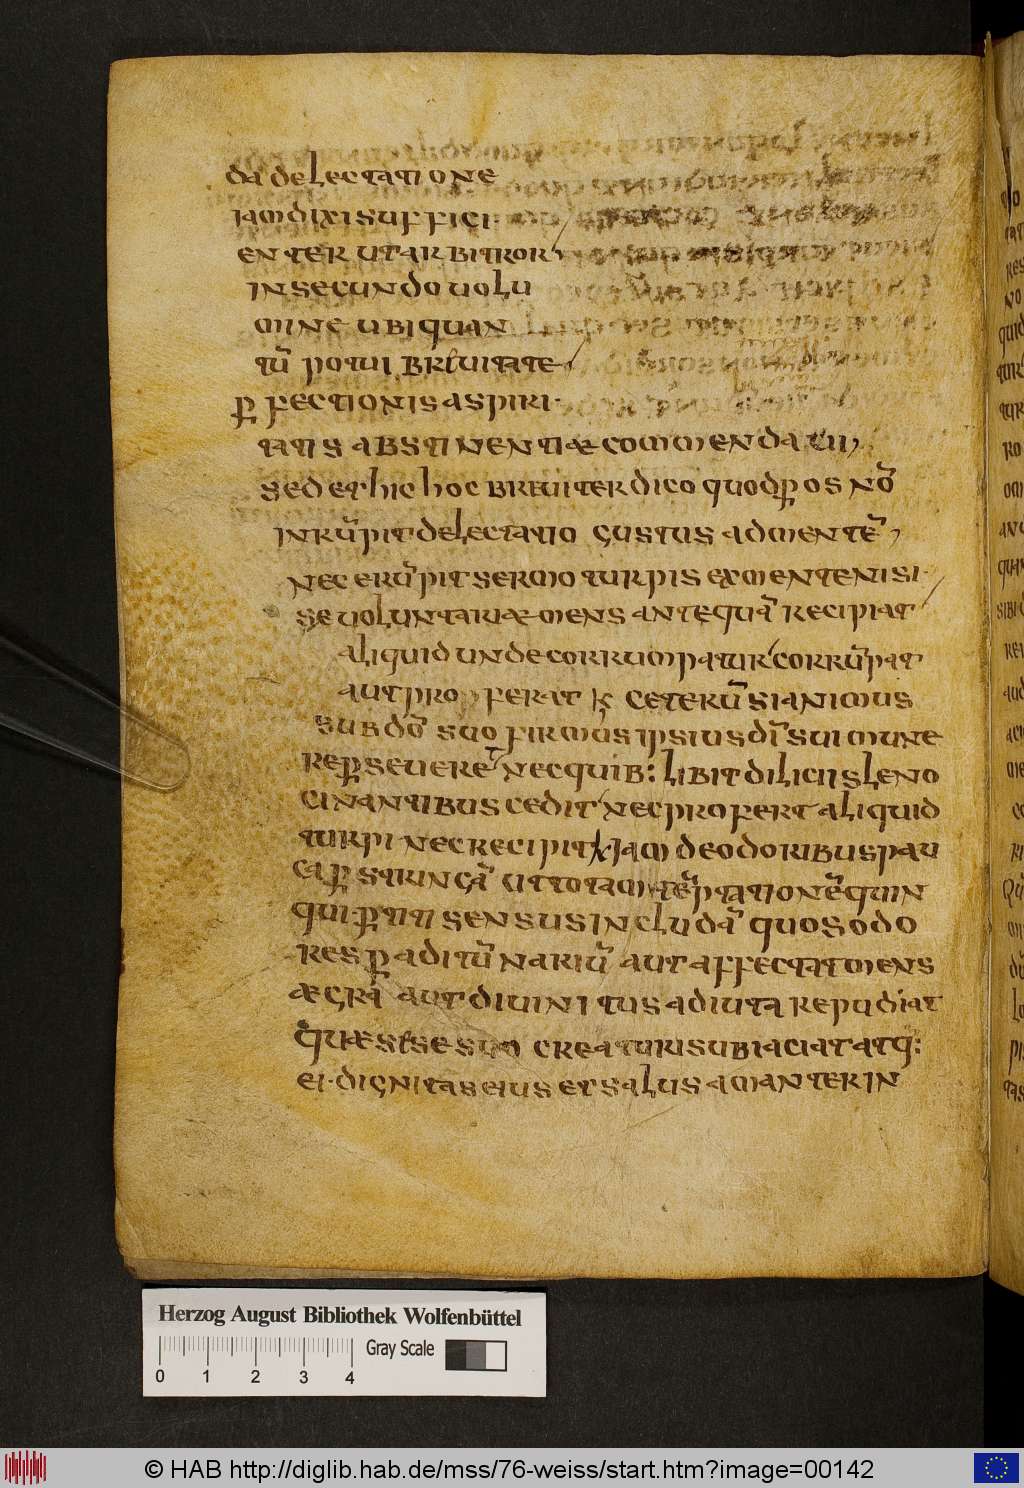 da delectatione
iam dixi suffici
enter ut arbitror,
in secundo uolu
mine ubi quan
tū potui breuitate
ꝑfectionis aspiri
tatis abstinentiæ commendaui,
sed et hic hoc breuiter dico quod ꝑ os nō
inrūpit delectatio gustus ad mentē,
nec erūpit sermo turpis ex mente nisi
se uoluntariæ mens antequā recipiat
aliquid unde corrumpatur corrūpat
aut pro ferat ceterū si animus
sub dō suo firmus ipsius dī sui mune
re ꝑseuere t nec quib: libit diliciis leno
cinantibus cedit nec profert aliquid
turpi nec recipit Iam de odoribus pau
ca ꝑstrungā ut totam tēptationē quin
qui ꝑtiti sensus includā quos odo
res ꝑ aditū nariū aut affectat mens
ægra aut diuinitus adiuta repudiat
Quæ si se suo creaturi subiaciat atq:
ei dignitas eius et salus amanter in
Herzog August Bibliothek Wolfenbüttel
Gray Scale
0 1 2 3 4
© HAB http://diglib.hab.de/mss/76-weiss/start.htm?image=00142